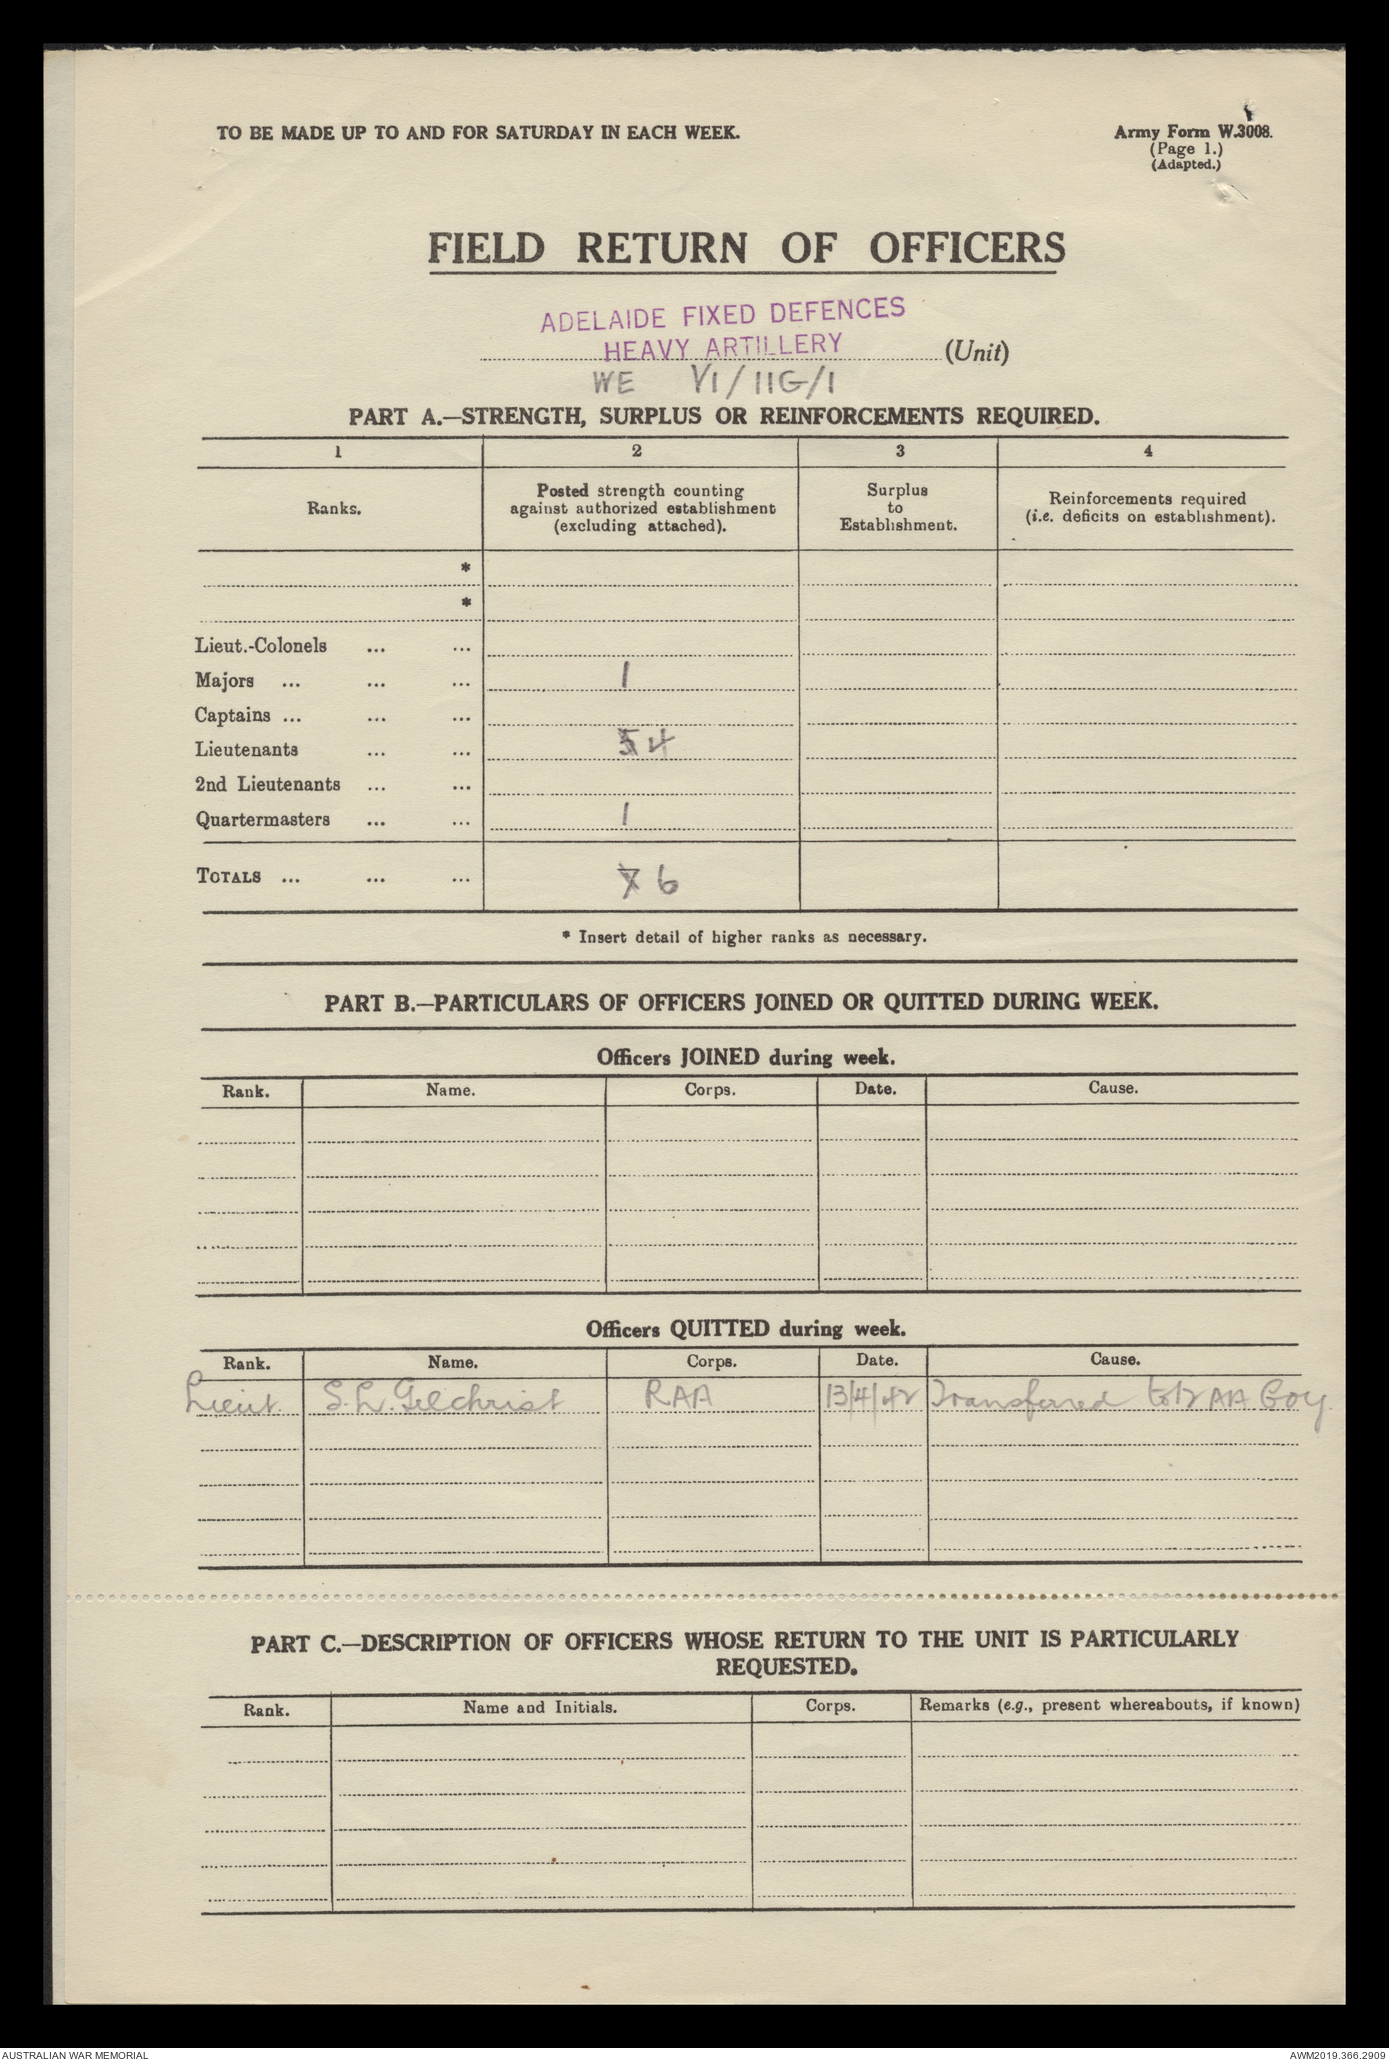 TO BE MADE UP TO AND FOR SATURDAY IN EACH WEEK.
Army Form W.3008.
(Page 1.)
(Adapted.)
FIELD RETURN OF OFFICERS
ADELAIDE FIXED DEFENCES
HEAVY ARTILLERY (Unit)
WE VI/11G/1
PART A.—STRENGTH, SURPLUS OR REINFORCEMENTS REQUIRED.
1 2 3 4
Ranks.
Posted strength counting
against authorized establishment
(excluding attached).
Surplus
to
Establishment.
Reinforcements required
(i.e. deficits on establishment).
*
*
Lieut.-Colonels ... ...
Majors ... ... ... 1
Captains ... ... ...
Lieutenants ... ... 5 4
2nd Lieutenants ... ...
Quartermasters ... ... 1
TOTALS ... ... ... 7 6
* Insert detail of higher ranks as necessary.
PART B.—PARTICULARS OF OFFICERS JOINED OR QUITTED DURING WEEK.
Officers JOINED during week.
Rank. Name. Corps. Date. Cause.
Officers QUITTED during week.
Rank. Name. Corps. Date. Cause.
Lieut. S.L. Gilchrist RAA 13/4/42 Transferred AA Coy
PART C.—DESCRIPTION OF OFFICERS WHOSE RETURN TO THE UNIT IS PARTICULARLY
REQUESTED.
Rank. Name and Initials. Corps. Remarks (e.g., present whereabouts, if known)
AUSTRALIAN WAR MEMORIAL
AWM2019.366.2909